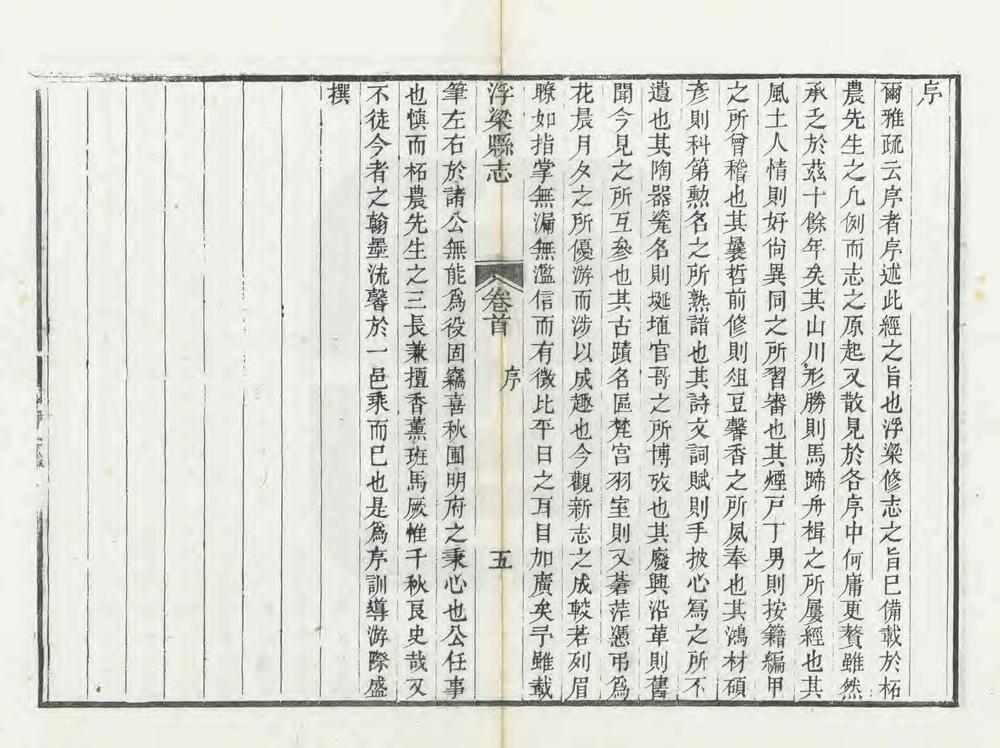 序
爾雅疏云序者序述此經之旨也浮梁修志之旨已備載於柘
農先生之凡例而志之原起又散見於各序中何庸更贅雖然
承乏於茲十餘年矣其山川形勝則馬蹄舟楫之所屢經也其
風土人情則好尙異同之所習審也其煙戸丁男則按籍編甲
之所曾稽也其曩哲前修則俎豆馨香之所夙奉也其鴻材碩
彥則科第勲名之所熟諳也其詩文詞賦則手披心寫之所不
遺也其陶器窰名則埏埴官哥之所博攷也其廢興沿革則舊
聞今見之所互參也其古蹟名區梵宫羽室則又蒼茫憑弔爲
花晨月夕之所優游而涉以成趣也今觀新志之成較若列眉
瞭如指掌無漏無濫信而有徵比平日之耳目加廣矣予雖載
浮梁縣志 卷首 序 五
筆左右於諸公無能爲役固竊喜秋圃明府之秉心也公任事
也慎而柘農先生之三長兼擅香薰班馬厥惟千秋良史哉又
不徒今者之翰墨流馨於一邑乘而已也是爲序訓導游際盛
撰